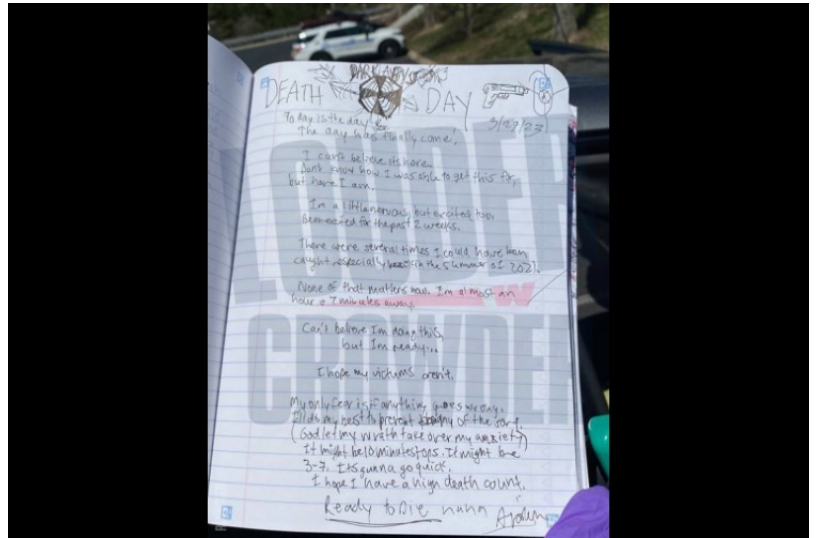 DARK ABYSS
DEATH DAY
3/27/23
Today is the day
The day has finally come!
I can't believe its here.
Don't know how I was able to get this far,
but here I am.
I'm a little nervous, but excited too.
Been excited for the past 2 weeks.
There were several times I could have been
caught especially back in the summer of 2021.
None of that matters now. I'm almost an
hour & 7 minutes away.
Can't believe I'm doing this,
but I'm ready...
I hope my victims aren't.
My only fear is if anything goes wrong.
I'll do my best to prevent any of the sort.
(God let my wrath take over my anxiety)
It might be 10 minutes tops. It might be
3-7. Its gunna go quick.
I hope I have a high death count.
Ready to Die haha Aiden
LOUDER
W
CROWDER